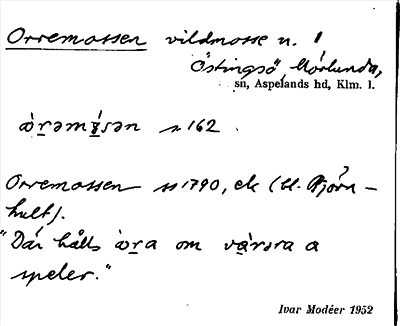 Orremossen vildmosse n. I
Östingsö, Mörlunda,
sn, Aspelands hd, Klm. l.
s 162
Orremossen ss 1790, ek (bl. Björn-
hult).
"Där hålls òra om vårora a
speler."
Ivar Modéer 1952